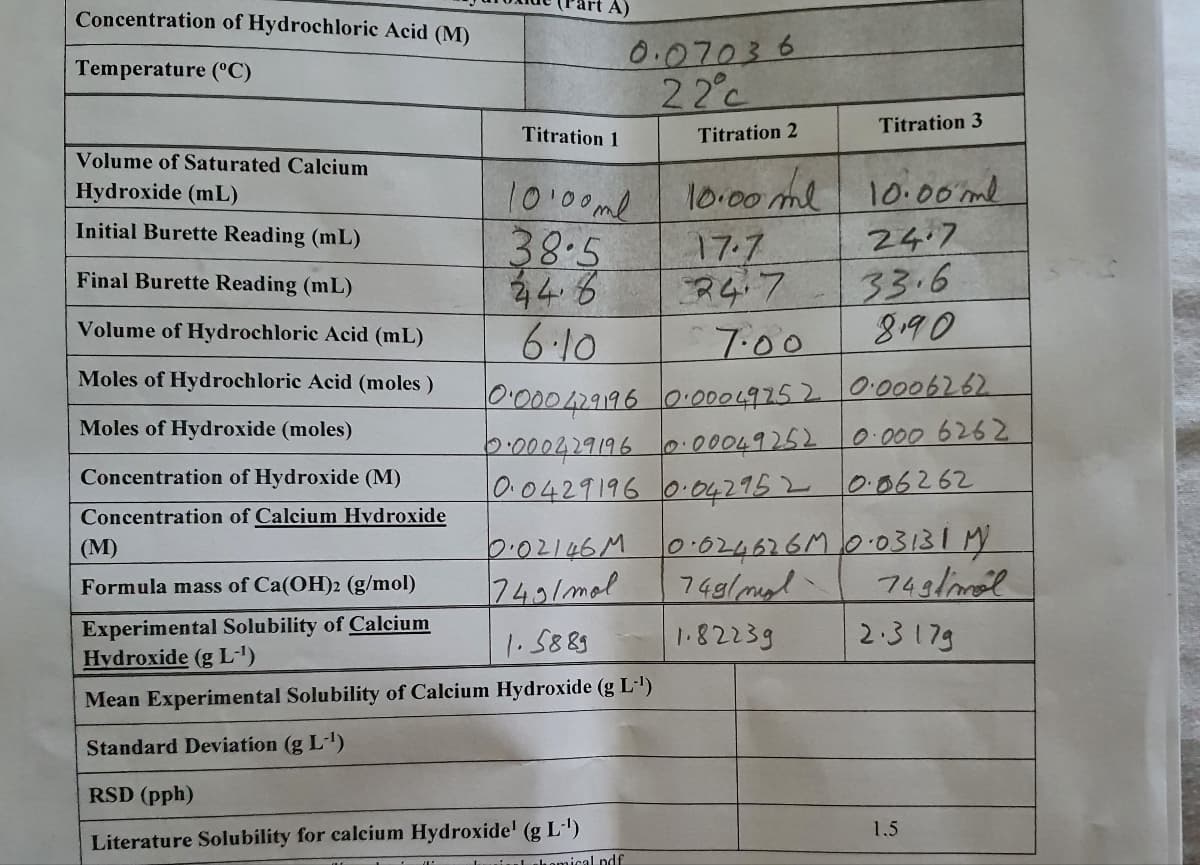 (Part A)
Concentration of Hydrochloric Acid (M) 0.07036
Temperature (°C) 22°c
Titration 1 Titration 2 Titration 3
Volume of Saturated Calcium
Hydroxide (mL) 10.00ml 10.00 ml 10.00 ml
Initial Burette Reading (mL) 38.5 17.7 24.7
Final Burette Reading (mL) 44.6 24.7 33.6
Volume of Hydrochloric Acid (mL) 6.10 7.00 8.90
Moles of Hydrochloric Acid (moles ) 0.000429196 0.00049252 0.0006262
Moles of Hydroxide (moles) 0.000429196 0.00049252 0.000 6262
Concentration of Hydroxide (M) 0.0429196 0.042952 0.06262
Concentration of Calcium Hydroxide
(M) 0.02146M 0.024626M 0.03131 M
Formula mass of Ca(OH)2 (g/mol) 74g/mol 74g/mol 74g/mol
Experimental Solubility of Calcium
Hydroxide (g L-1) 1.588g 1.8223g 2.317g
Mean Experimental Solubility of Calcium Hydroxide (g L-1)
Standard Deviation (g L-1)
RSD (pph)
Literature Solubility for calcium Hydroxide1 (g L-1) 1.5